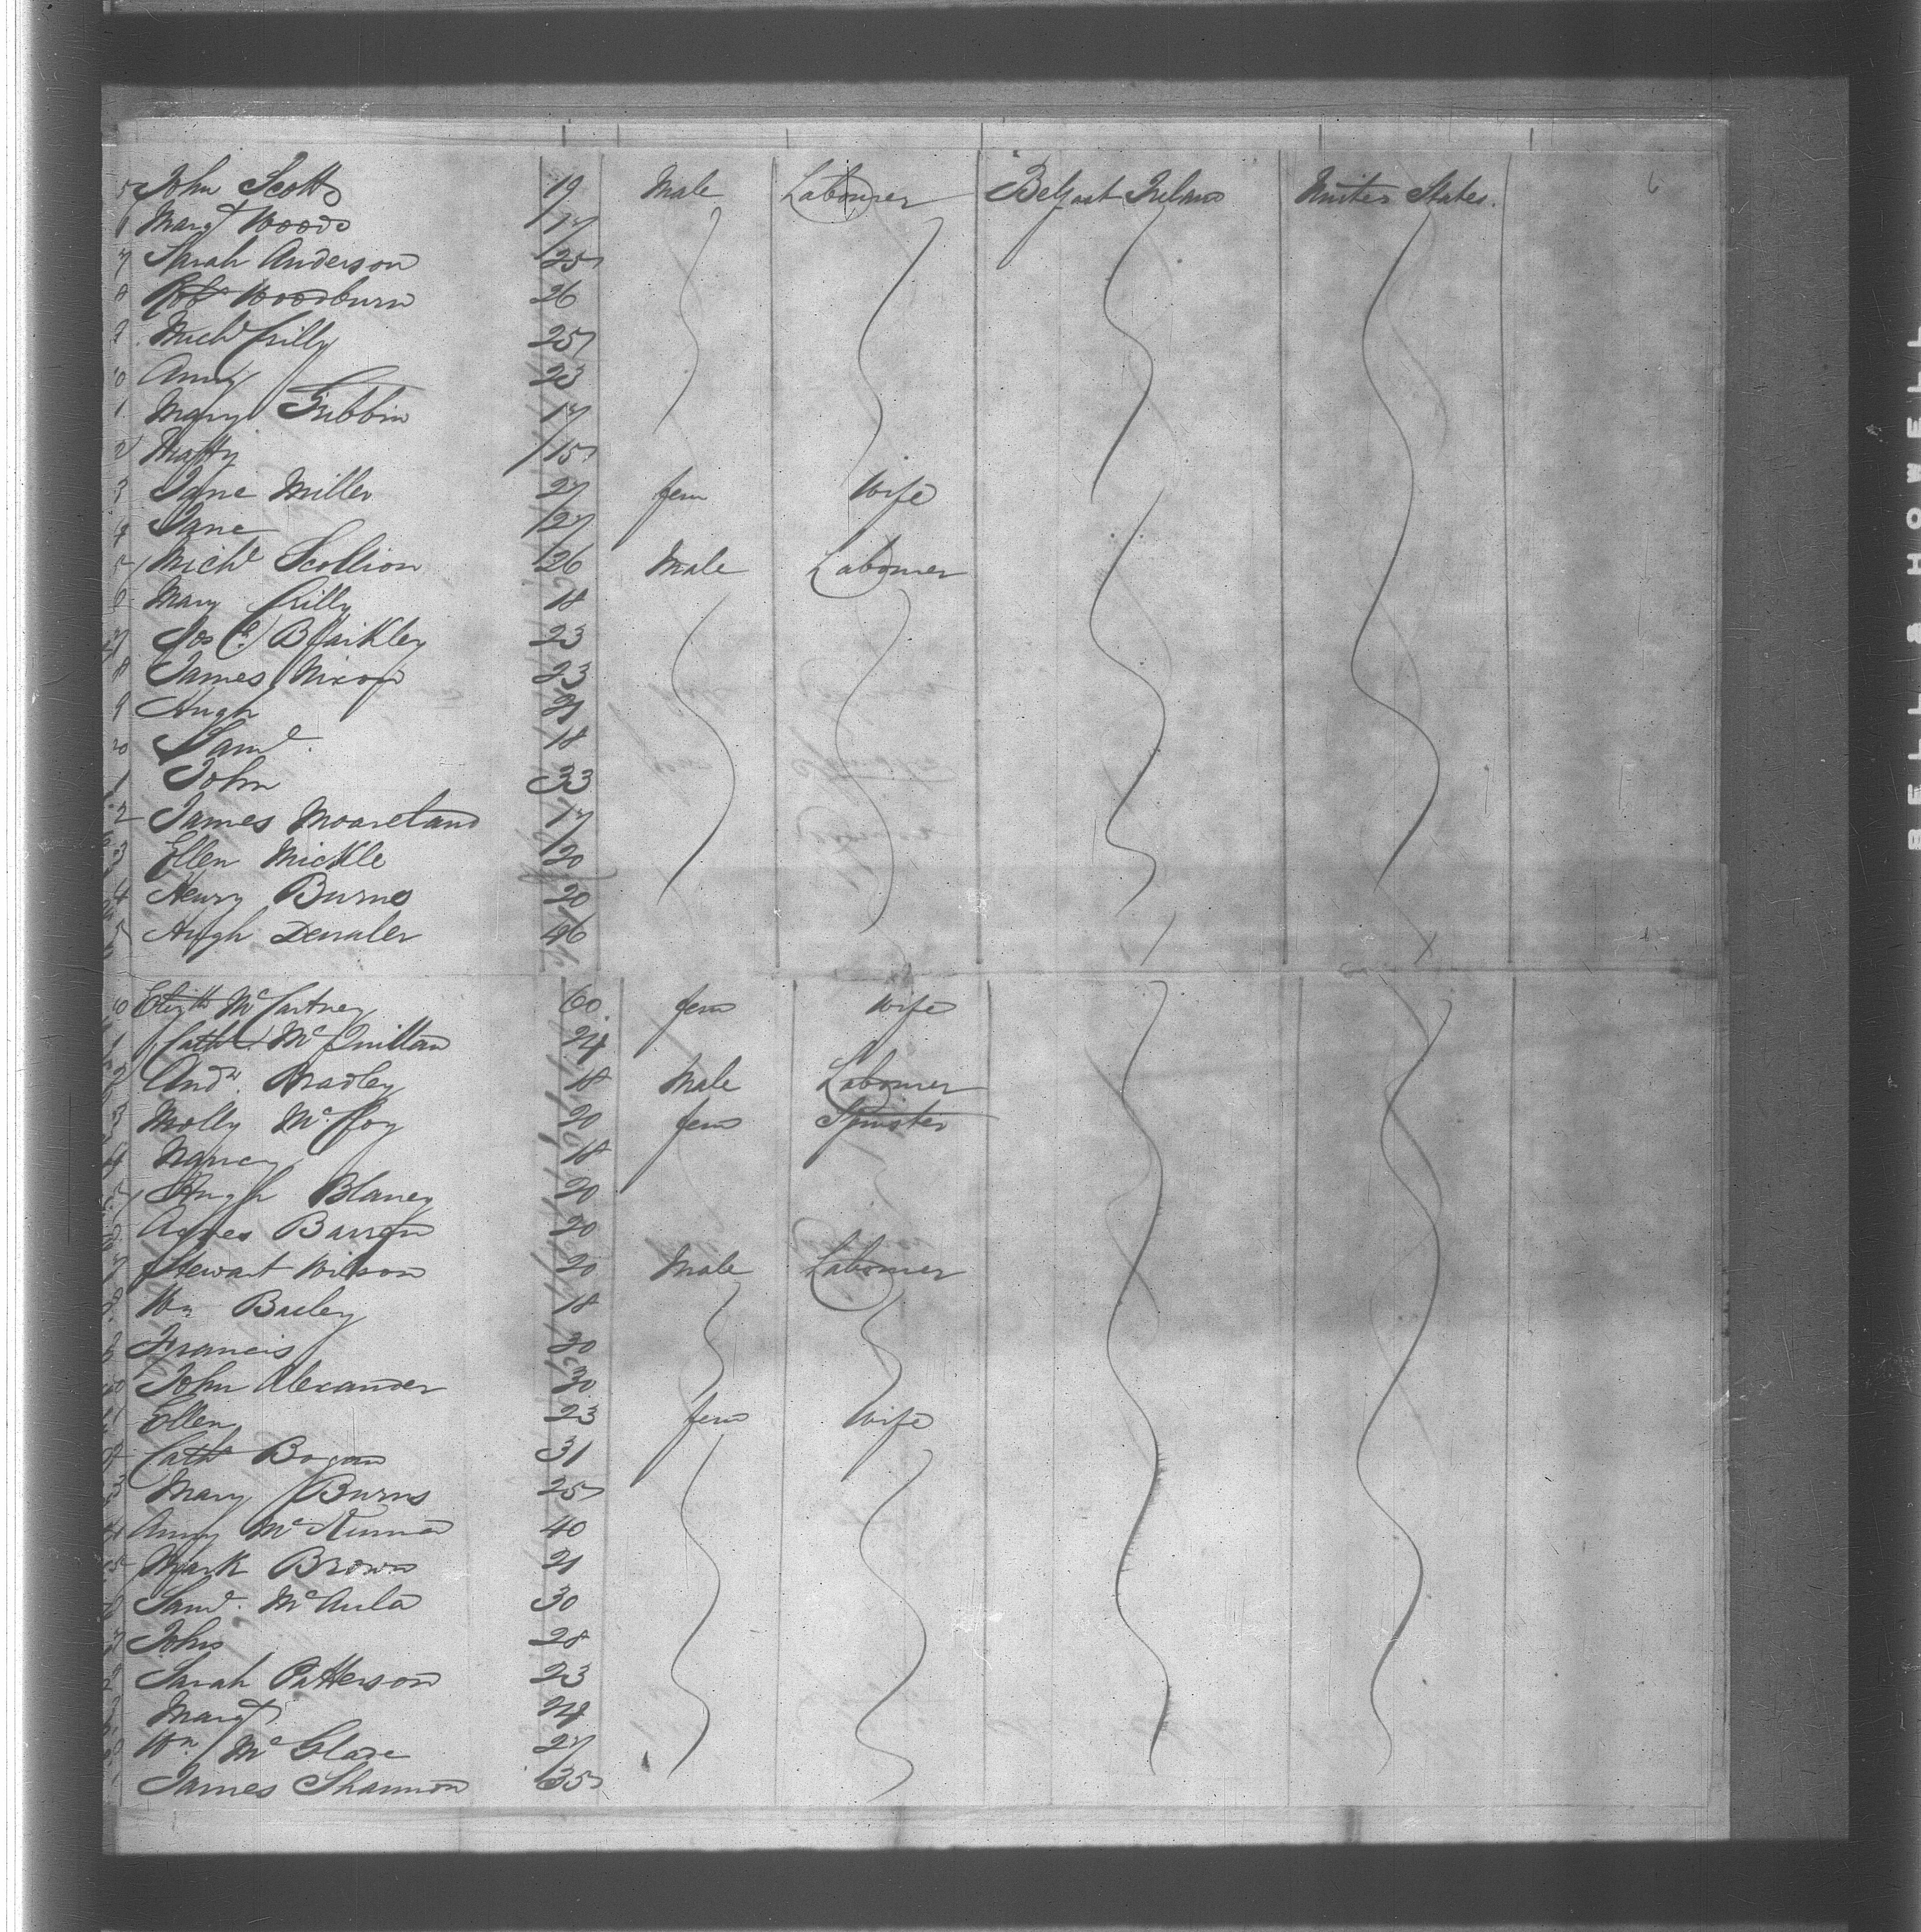 5 John Scott 19 Male Labourer Belfast Ireland United States. 6
6 Margt Woods 17
7 Sarah Anderson 25
8 Robt Woodburn 26
9 Michl Crilly 25
10 Anny 23
1 Mary Gribbin 17
2 Matty 15
3 Jane Miller 27 fem Wife
4 Jane 27
5 Michl Scollion 26 Male Labourer
6 Mary Crilly 18
7 Jos C. Blaikley 23
8 James Nixon 23
9 Hugh 21
20 Saml. 18
1 John 33
2 James Mooreland 17
3 Ellen Mickle 20
4 Henry Burns 20
5 Hugh 46
6 Elizth McCartney 60 fem Wife
Cathe McQuillan 24
Andw. Bradley 18 Male Labourer
3 Molly McCoy 20 fem Spinster
4 Nancy 18
5 Hugh Blaney 20
Agnes Barron 20
7 Stewart Wilson 20 Male Labourer
8 Wm Bailey 18
Francis 20
John Alexander 30
Ellen 23 fem Wife
Cath Bogan 31
3 Mary Burns 25
4 Anny 40
5 Mark Brown 21
Saml. McAula 30
7 John 28
Sarah Patterson 23
Margt 24
Wm McGlade 27
1 James Shannon 35
BELL & HOWELL